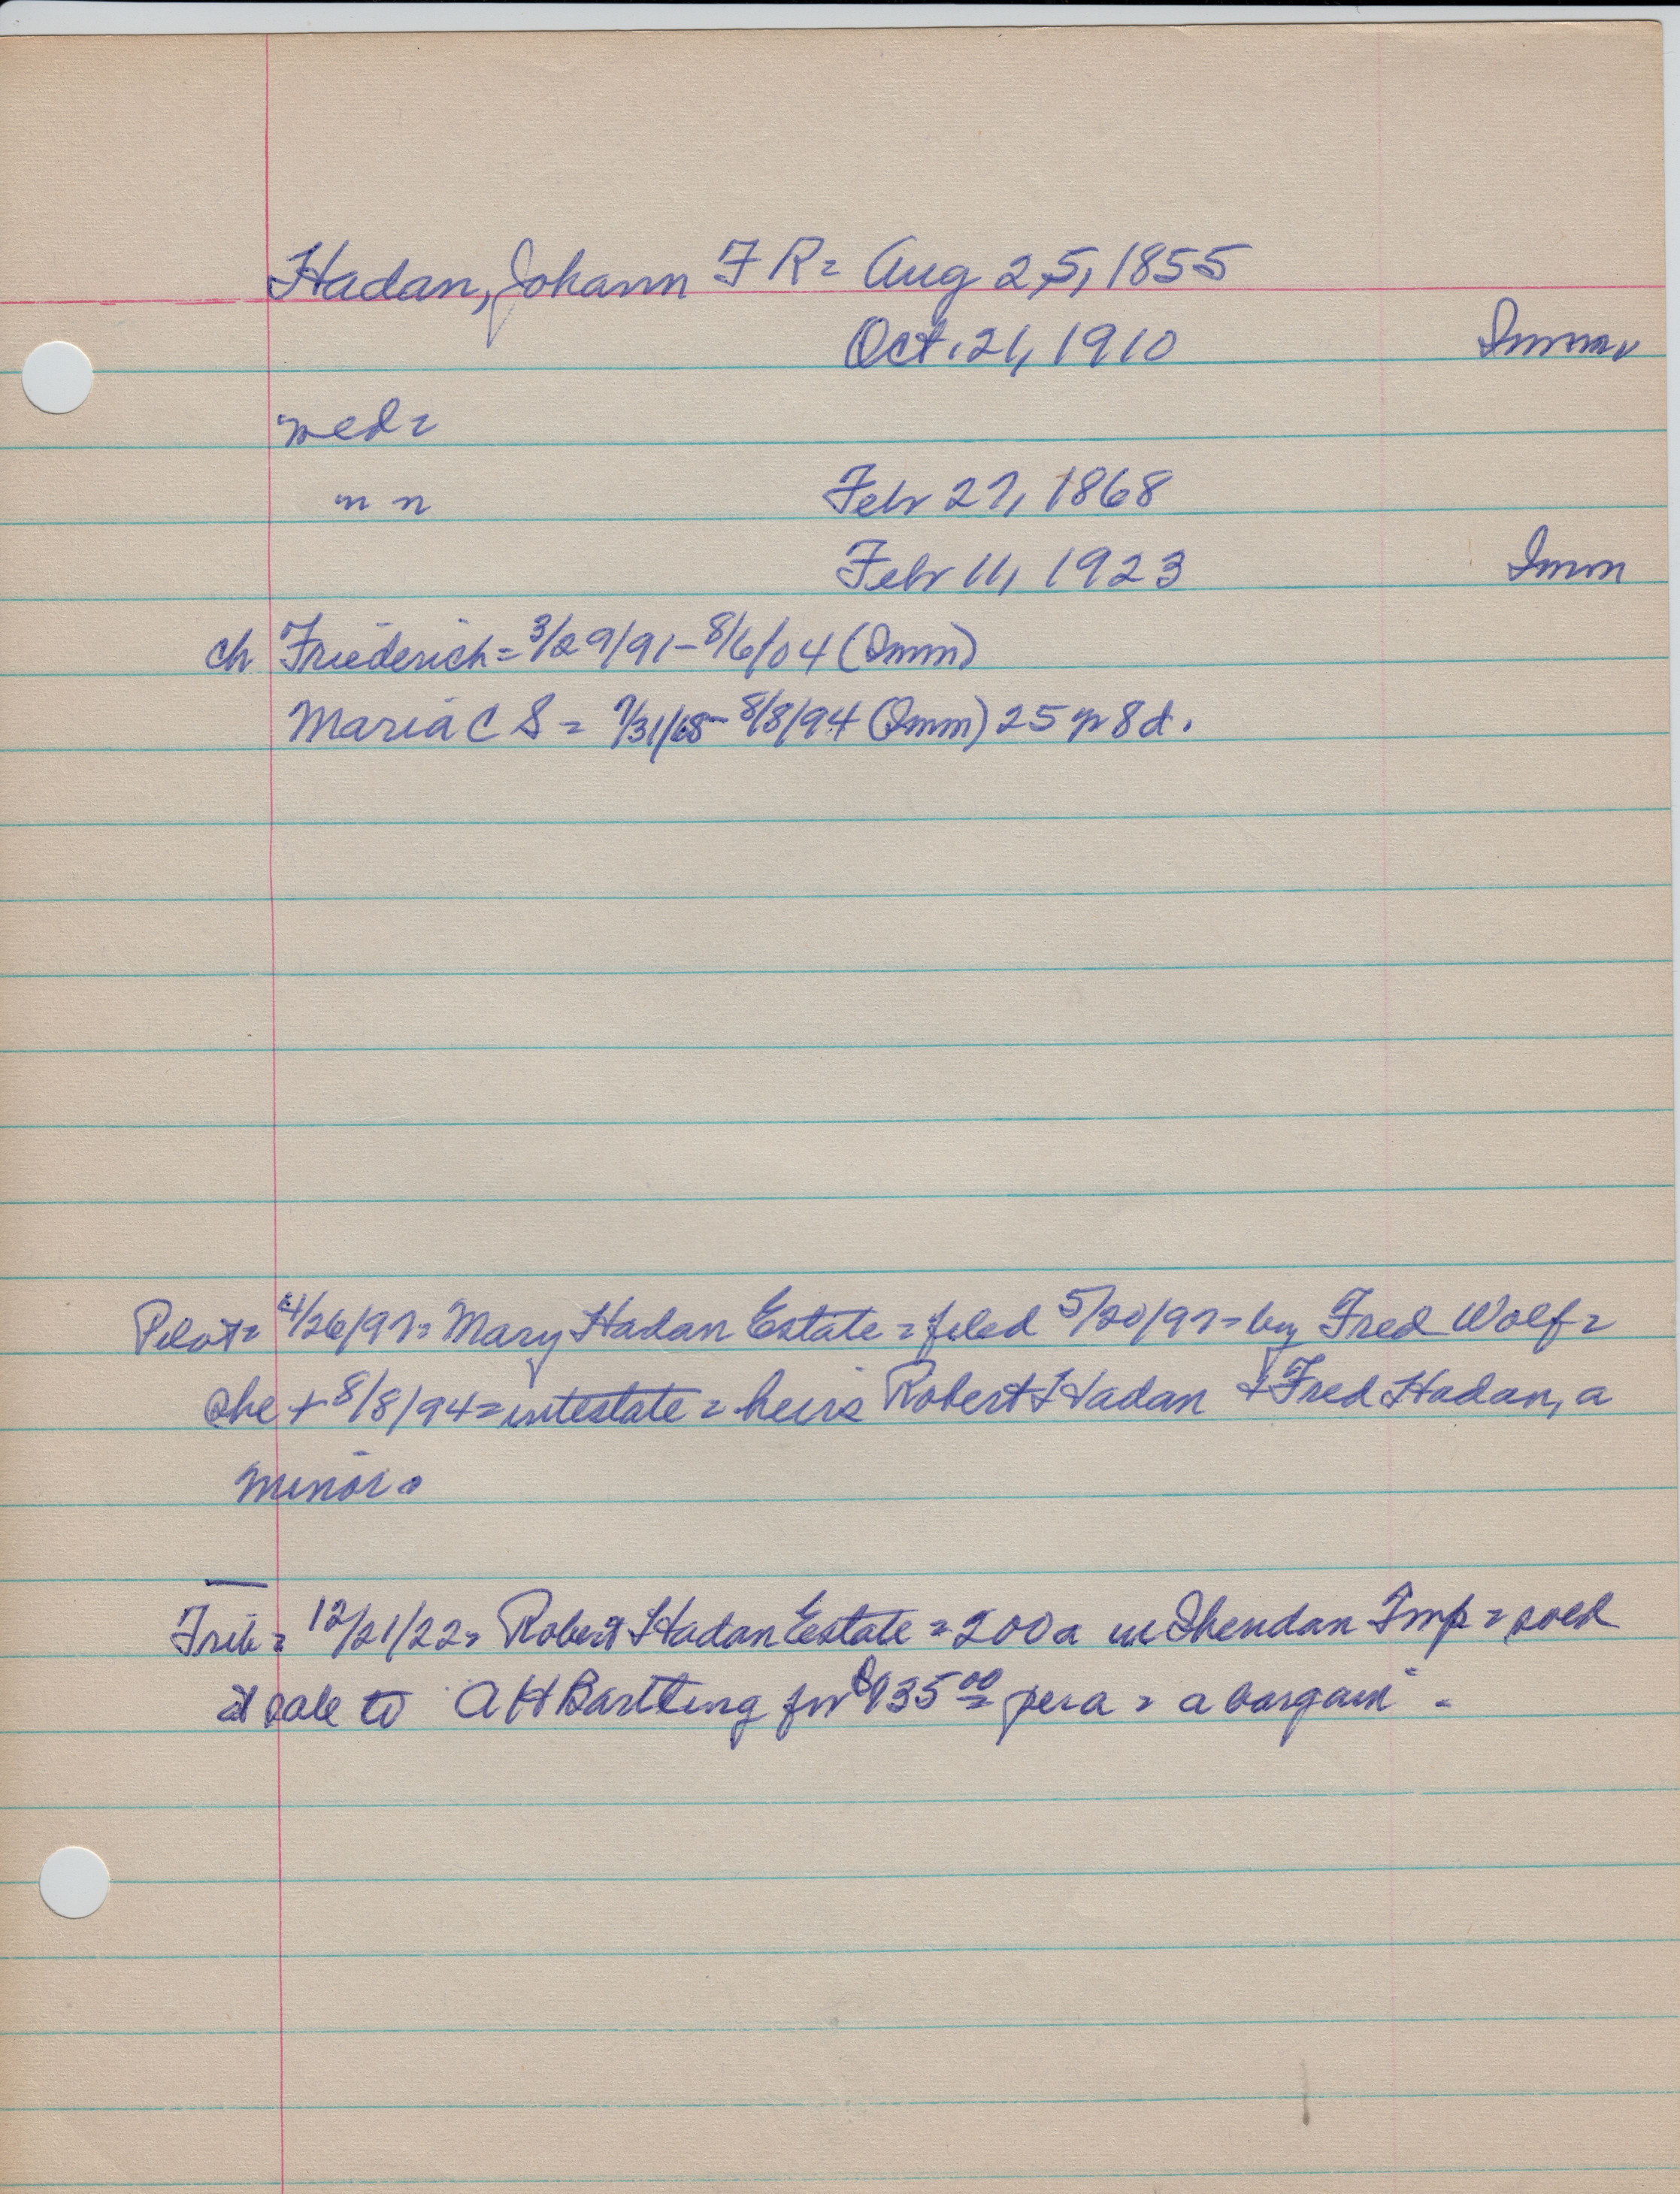 Hadan, Johann F R = Aug 25, 1855
Oct. 21, 1910 Imman
wed =
m n Febr 27, 1868
Febr 11, 1923 Imm
ch Friederich = 3/29/91 - 8/6/04 (Imm)
Maria C S = 7/31/68 - 8/8/94 (Imm) 25 y 8 d.
Pilot = 4/26/97 = Mary Hadan Estate = filed 5/20/97 = by Fred Wolf =
she + 8/8/94 = intestate = heirs Robert Hadan + Fred Hadan, a
minor.
Trib = 12/21/22 = Robert Hadan Estate = 200a in Sheridan Twp = sold
at sale to A H Bartling for $135.00 = per a = a bargain -